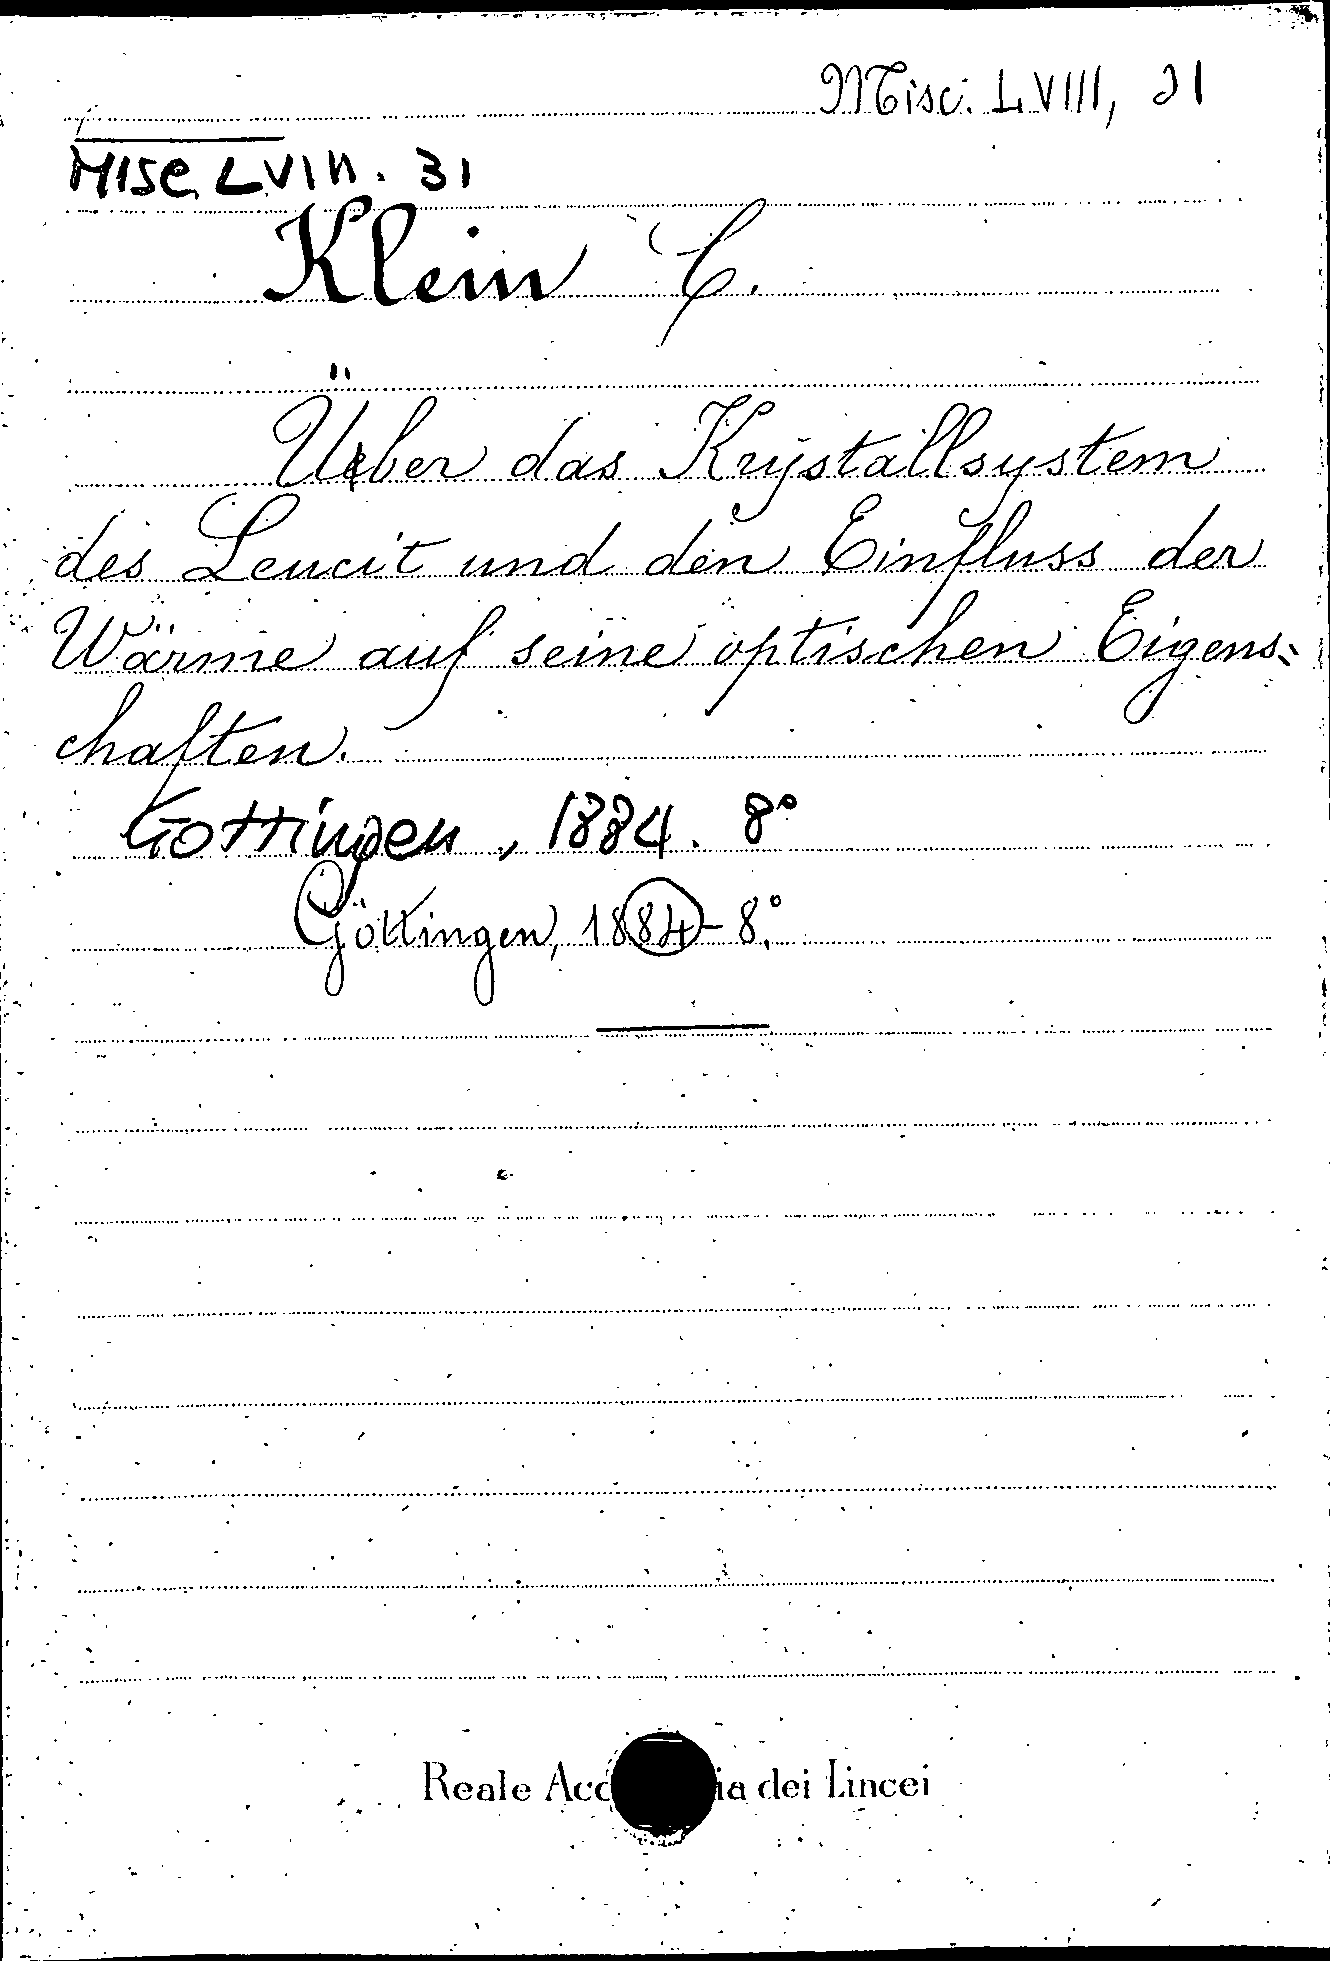 Misc. LVIII, 31
MISC LVIII. 31
Klein C.
Über das Krystallsystem
des Leucit und den Einfluss der
Wärme auf seine optischen Eigens=
chaften.
Gottingen, 1884. 8°
Göttingen, 1884 - 8°.
Reale Acc ia dei Lincei